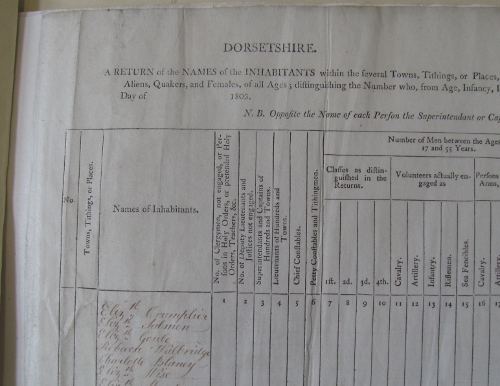 DORSETSHIRE.
A RETURN of the NAMES of the INHABITANTS within the ſeveral Towns, Tithings, or Places,
Aliens, Quakers, and Females, of all Ages; diſtinguiſhing the Number who, from Age, Infancy,
Day of 1803.
N. B. Oppoſite the Name of each Perſon the Superintendant or
Number of Men between the Ages
17 and 55 Years.
Claſſes as diſtin-
guiſhed in the
Returns.
Volunteers actually en-
gaged as
Perſons
Arms,
No.
Towns, Tithings, or Places.
Names of Inhabitants.
No. of Clergymen, not engaged, or Per-
ſons in Holy Orders, or pretended Holy
Orders, Teachers, &c.
No. of Deputy Lieutenants and
Juſtices not engaged.
Superintendants and Captains of
Hundreds and Towns.
Lieutenants of Hundreds and
Towns.
Chief Conſtables.
Petty Conſtables and Tithingmen.
1ſt. 2d. 3d. 4th.
Cavalry.
Artillery.
Infantry.
Riflemen.
Sea Fencibles.
Cavalry.
1 2 3 4 5 6 7 8 9 10 11 12 13 14 15 16 17
Eliz.th Crumpler
Eliz.th Salmon
Eliz.th
Rebecca Walbridge
Charlotte Blaney
Eliz.th Wise